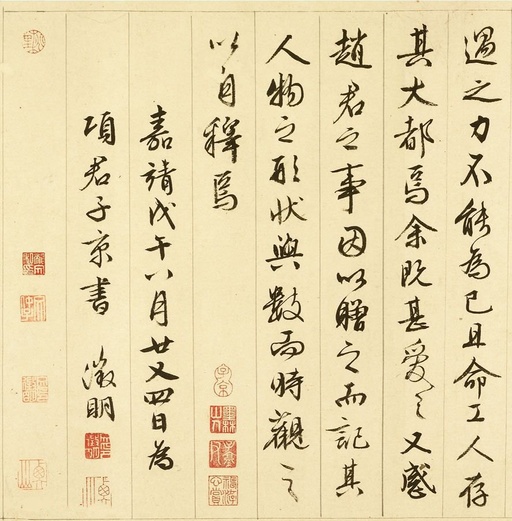 遇之力不能為已且命工人存
其大都焉余既甚愛之又感
趙君之事因以贈之而記其
人物之形狀與數而時觀之
以自釋焉
嘉靖戊午八月廿又四日為
項君子京書 徵明
子京
墨林山人